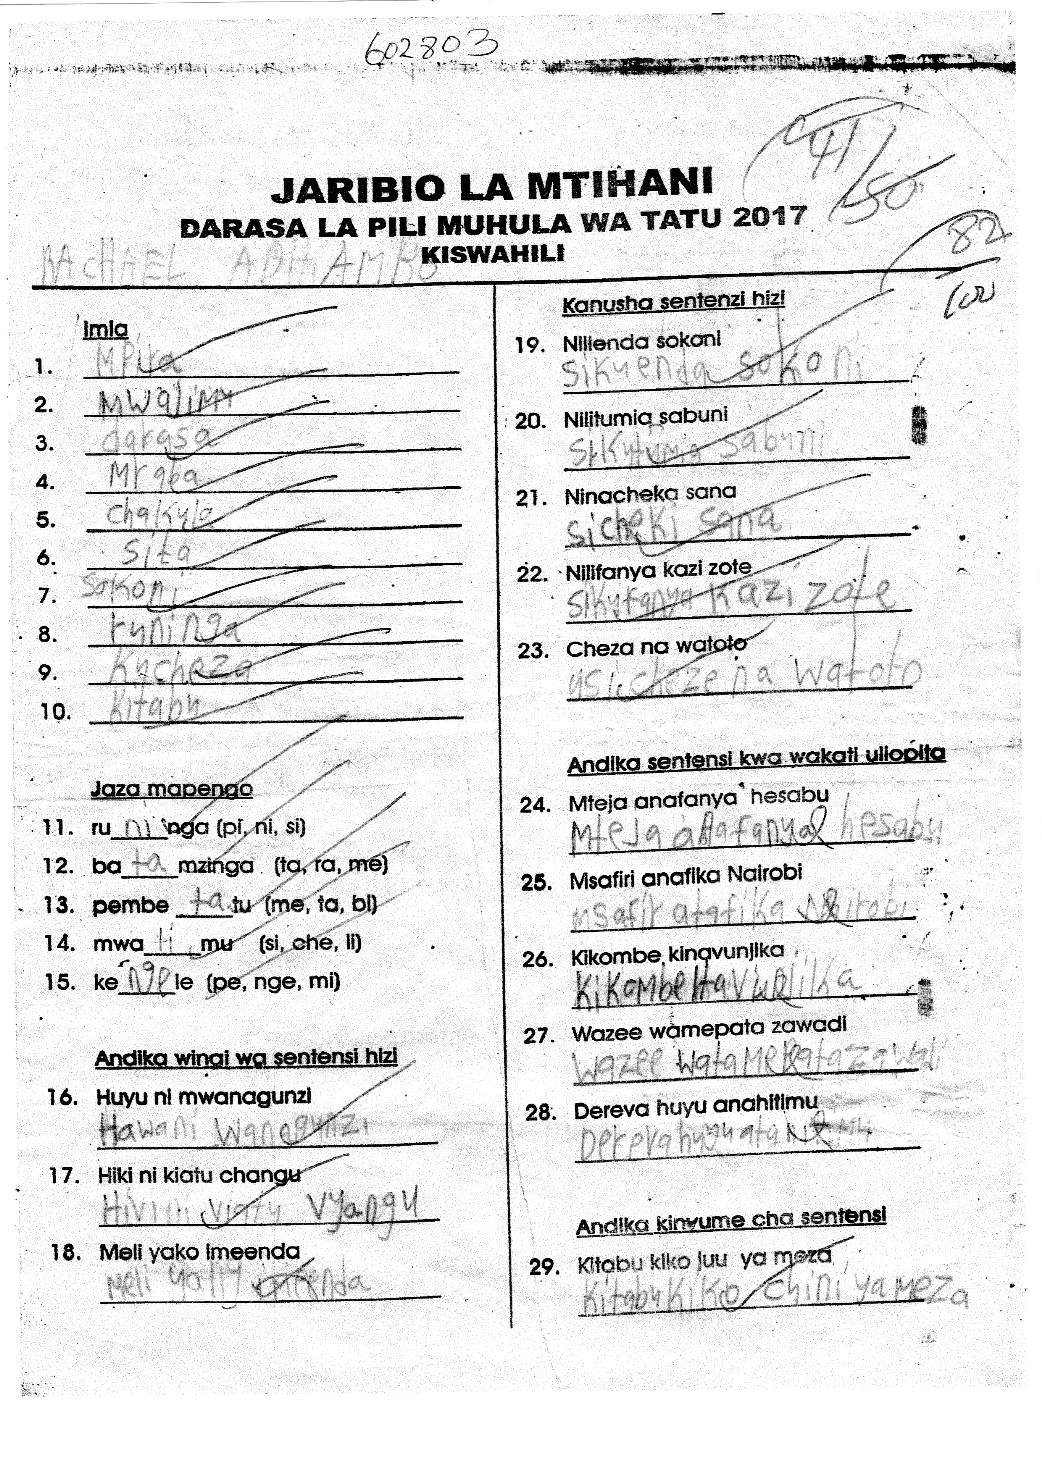 602803
41/50
JARIBIO LA MTIHANI
DARASA LA PILI MUHULA WA TATU 2017
KISWAHILI
82/100
MICHAEL ADHIAMBO
Imla
1. Mpira
2. Mwalimu
3. darasa
4. Mraba
5. chakula
6. Sita
7. Sokoni
8. runinga
9. Kucheza
10. Kitabu
Jaza mapengo
11. ru ni nga (pi, ni, si)
12. ba ta mzinga (ta, ra, me)
13. pembe ta tu (me, ta, bi)
14. mwa li mu (si, che, li)
15. ke nge le (pe, nge, mi)
Andika wingi wa sentensi hizi
16. Huyu ni mwanagunzi
Hawa ni wanagunzi
17. Hiki ni kiatu changu
Hivi ni viatu vyangu
18. Meli yako imeenda
Meli
Kanusha sentenzi hizi
19. Nilienda sokoni
Sikuenda sokoni
20. Nilitumia sabuni
Sikutumia sabuni
21. Ninacheka sana
Sicheki sana
22. Nilifanya kazi zote
Sikufanya kazi zote
23. Cheza na watoto
usicheze na watoto
Andika sentensi kwa wakati uliopita
24. Mteja anafanya hesabu
Mteja hesabu
25. Msafiri anafika Nairobi
atafika
26. Kikombe kinavunjika
Kikombe
27. Wazee wamepata zawadi
Wazee watamepata zawadi
28. Dereva huyu anahitimu
Dereva huyu
Andika kinyume cha sentensi
29. Kitabu kiko juu ya meza
Kitabu kiko chini ya meza